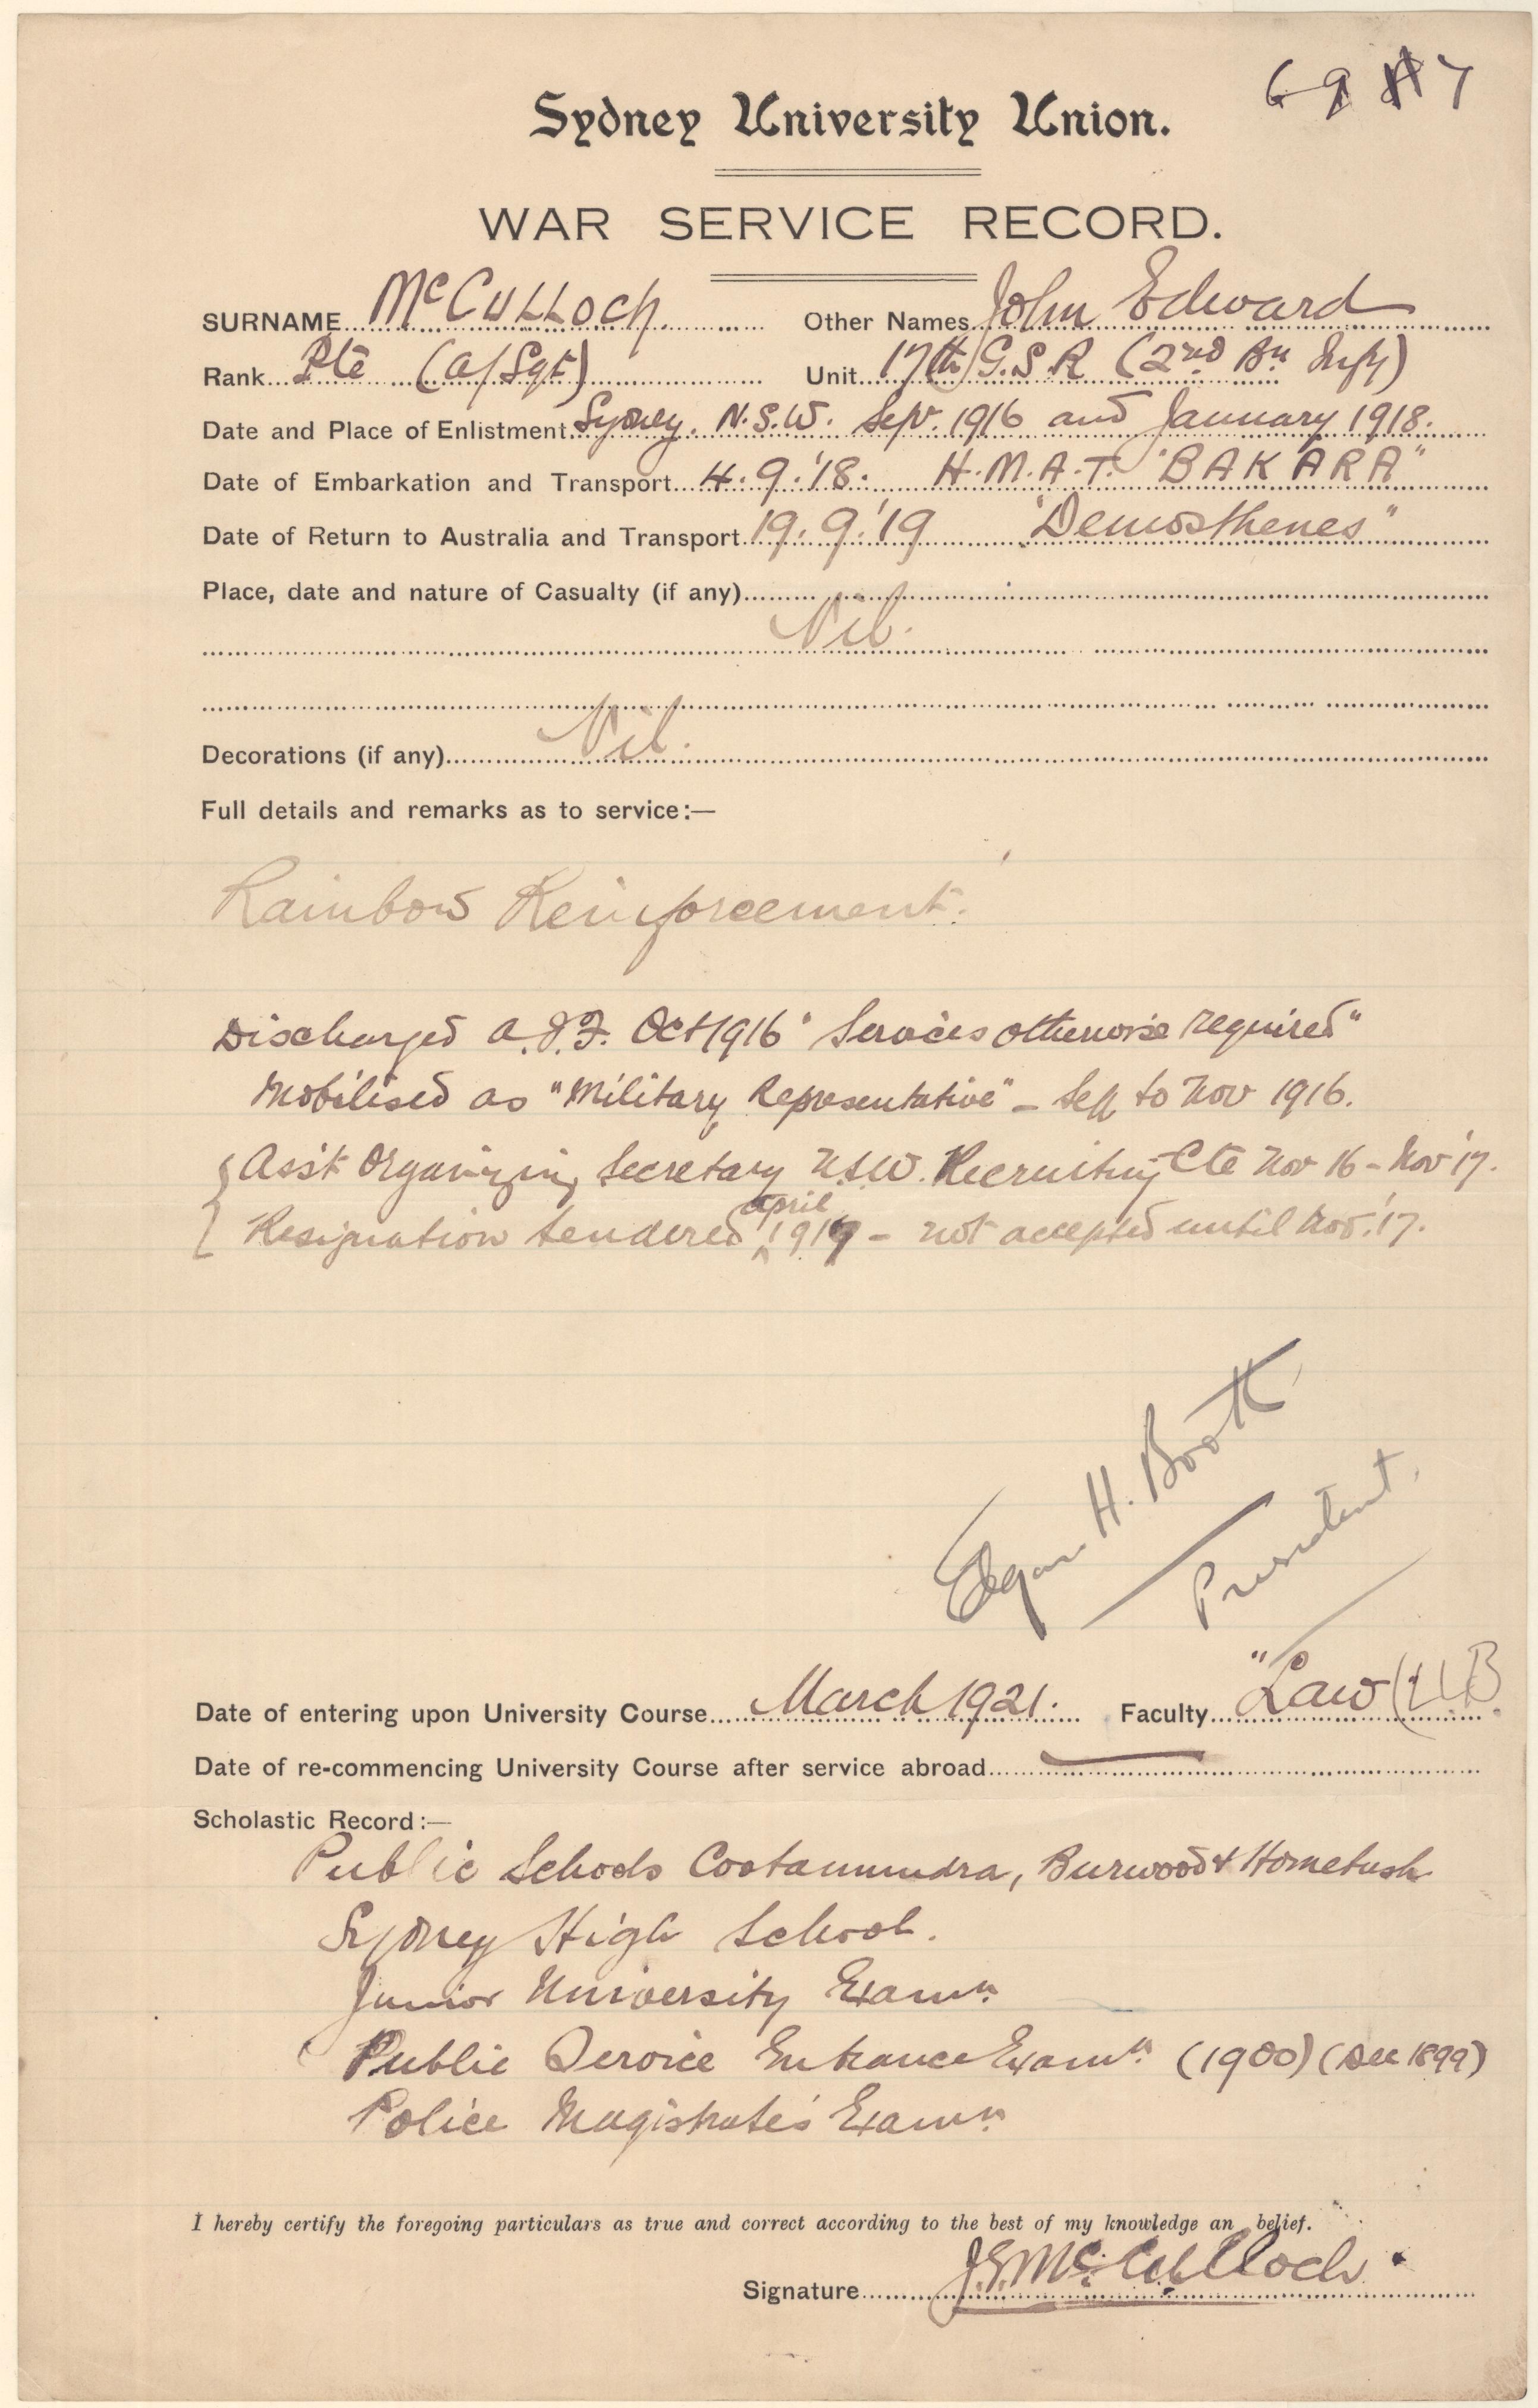 Sydney University Union.
WAR SERVICE RECORD.
SURNAME McCulloch Other Names John Edward
Rank Pte (a/Sgt) Unit 17th G.S.R (2nd Bn Infy)
Date and Place of Enlistment Sydney. N.S.W. Sep. 1916 and January 1918.
Date of Embarkation and Transport 4.9.'18. H.M.A.T. "BAKARA"
Date of Return to Australia and Transport 19.9.'19 "Demosthenes"
Place, date and nature of Casualty (if any)
Nil.
Decorations (if any) Nil.
Full details and remarks as to service:—
Rainbow Reinforcement.
Discharged A.I.F. Oct 1916 "Services otherwise required"
Mobilised as "Military Representative" - Sep to Nov 1916.
Ass't Organizing Secretary N.S.W. Recruiting Cte Nov 16 - Nov '17.
Resignation tendered April 1917 - not accepted until Nov. '17.
Edgar H. Booth
President.
Date of entering upon University Course March 1921. Faculty "Law (LLB
Date of re-commencing University Course after service abroad —
Scholastic Record:—
Public Schools Cootamundra, Burwood & Homebush
Sydney High School.
Junior University Examn
Public Service Entrance Examn (1900) (Dec 1899)
Police Magistrates Examn
I hereby certify the foregoing particulars as true and correct according to the best of my knowledge an belief.
Signature J.E. McCulloch